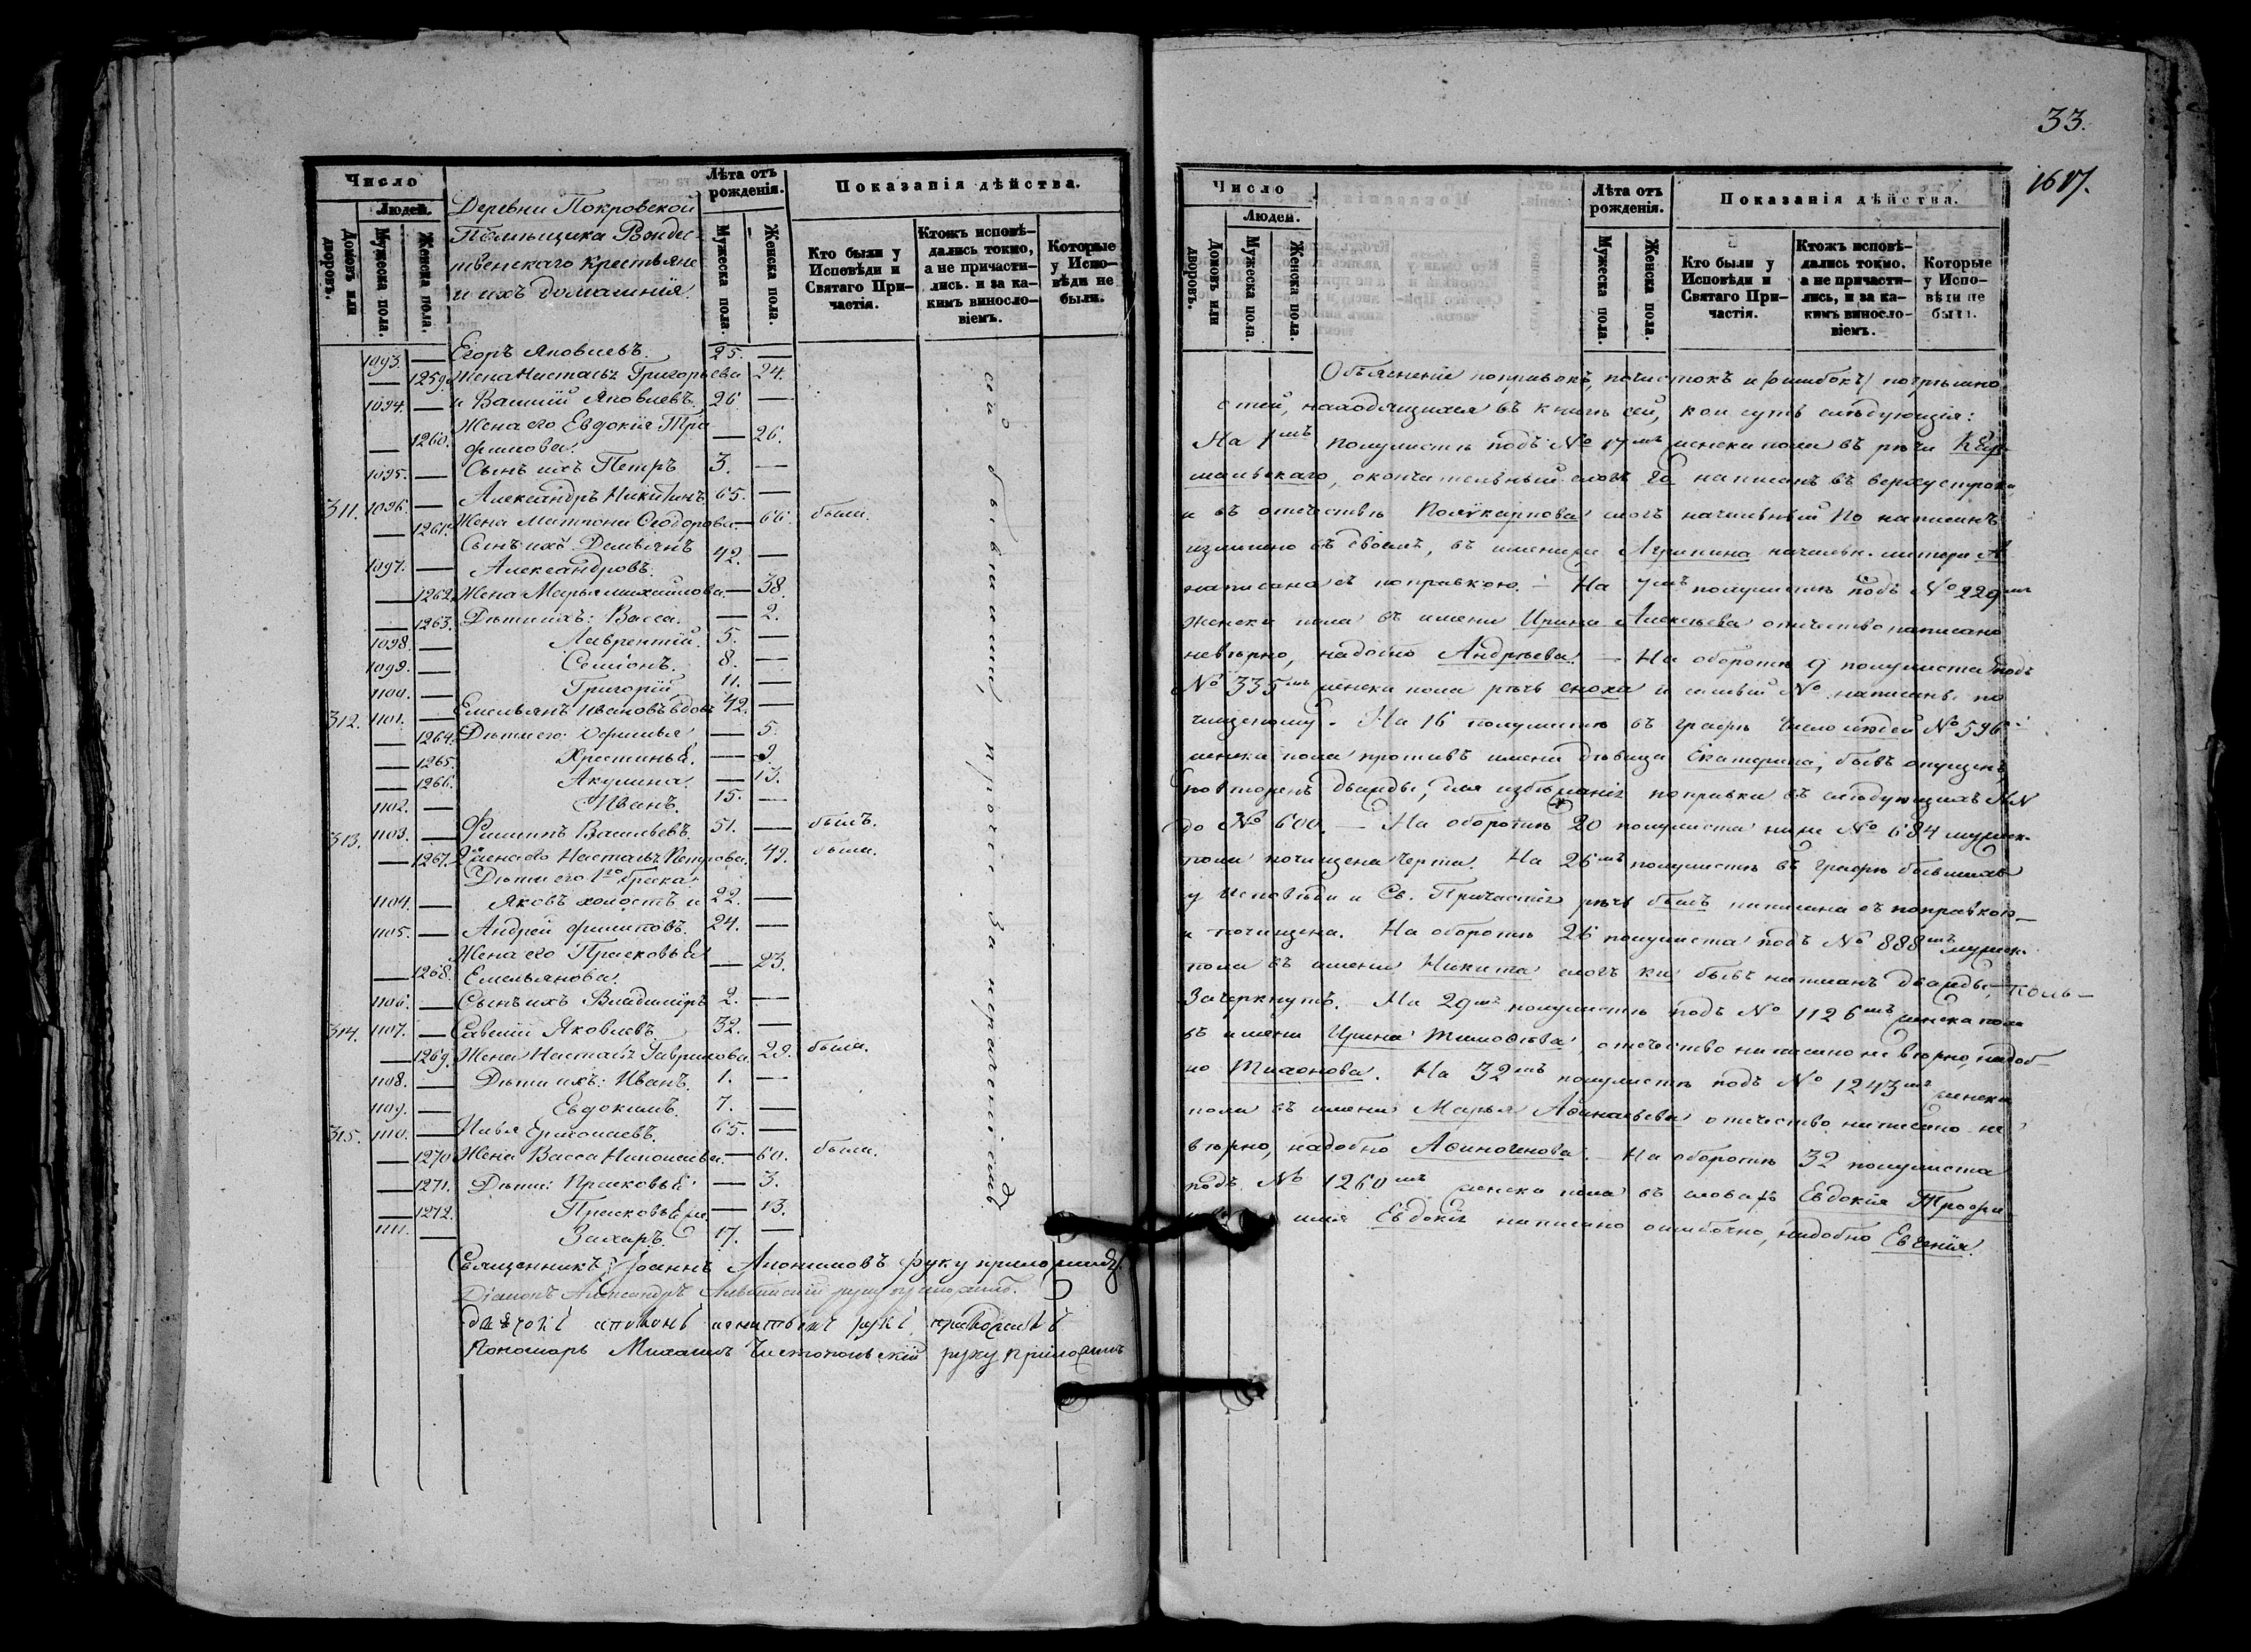 Число
Людей.
Домовъ или дворовъ.
Мужеска пола.
Женска пола.
Деревни Покровской
Помѣщика Рождес-
твенскаго крестьяне
и ихъ домашнія.
Лѣта отъ рожденія.
Мужеска пола.
Женска пола.
Показанія дѣйства.
Кто были у Исповѣди и Святаго При-частія.
Ктожъ исповѣ-дались токмо, а не причасти-лись. и за ка-кимъ виносло-віемъ.
Которые у Испо-вѣди не были.
1093. — Егоръ Яковлевъ. 25. —
— 1259. Жена Настасья Григорьева 24.
1094. — и Василій Яковлевъ. 26 —
Жена его Евдокія Тро-
— 1260. фимова. — 26.
1095. — Сынъ ихъ Петръ 3. —
311. 1096. — Александръ Никитинъ 65. —
— 1261. Жена Матрона Ѳеодорова — 66. была.
Сынъ ихъ Демьянъ
1097. — Александровъ. 42. —
— 1262. Жена Марья Михайлова — 38.
— 1263. Дѣти ихъ: Васса. — 2.
1098. — Лаврентій. 5. —
1099. — Семіонъ. 8. —
1100. — Григорій 11. —
312. 1101. — Емельянъ Ивановъ вдовъ 42. —
— 1264. Дѣти его: Ефимья — 5.
— 1265. Христинья. — 9.
— 1266. Акулина. — 13.
1102. — Иванъ. 15. —
313. 1103. — Филиппъ Васильевъ. 51. — былъ.
— 1267. 2я жена его Настасья Петрова. 49. была.
Дѣти его 1го брака:
1104. — Яковъ холостъ и 22. —
1105. — Андрей Филиповъ. 24. —
Жена его Прасковья
— 1268. Емельянова. — 23.
1106. — Сынъ ихъ Владиміръ 2. —
314. 1107. — Савелій Яковлевъ. 32. —
— 1269. Жена Настасья Гаврилова 29. была.
1108. — Дѣти ихъ: Иванъ. 1. —
1109. — Евдокимъ. 7. —
315. 1110. — Илья Ермолаевъ. 65. —
— 1270 Жена Васса Николаева. — 60. была.
— 1271. Дѣти: Прасковья — 3.
— 1272. Прасковья же. — 13.
1111. — Захаръ. 17. —
Священникъ Іоаннъ руку приложилъ.
Діаконъ Александръ руку приложилъ.
Пономарь Михаилъ Чистопольскій руку приложилъ
33.
1617.
Число
Людей.
Домовъ или дворовъ.
Мужеска пола.
Женска пола.
Лѣта отъ рожденія.
Мужеска пола.
Женска пола.
Показанія дѣйства.
Кто были у Исповѣди и Святаго При-частія.
Ктожъ исповѣ-дались токмо. а не причасти-лись, и за ка-кимъ винослo-віемъ.
Которые у Испо-вѣди не были.
Объясненіе поправокъ, почистокъ и (ошибокъ) погрѣшно
стей, находящихся въ книгѣ сей, кои суть слѣдующія:
На 1мъ полулистѣ подъ № 17мъ женска пола въ рѣчи
окончательный слогъ го написанъ въ верху строки
и въ отечествѣ Поликарпова слогъ начальный По написанъ
въ имени Агрипина начальн. литера А
написана съ поправкою. — На 7мъ полулистѣ подъ № 229мъ
женска пола въ имени Ирина Алексѣева отечество написано
невѣрно, надобно Андрѣева. — На оборотѣ 9 полулиста подъ
№ 335мъ женска пола рѣчь сноха и самый № написанъ по
чищеному. — На 16 полулистѣ въ графѣ число людей № 596
женска пола противъ имени дѣвица Екатерина, бывъ опущенъ
повторенъ дважды, для избѣжанія поправки въ слѣдующихъ №№
до № 600. — На оборотѣ 20 полулиста ниже № 684 мужеск.
пола почищена черта. На 26мъ полулистѣ въ графѣ бывшихъ
у Исповѣди и Св. Причастія рѣчь былъ написана съ поправкою
и почищена. На оборотѣ 26 полулиста подъ № 888мъ мужеск.
пола въ имени Никита слогъ ки бывъ написанъ дважды,
зачеркнутъ. — На 29мъ полулистѣ подъ № 1126мъ женска пола
въ имени Ирина Тимофѣева, отечество написано не вѣрно, надоб-
но Тихонова. На 32мъ полулистѣ подъ № 1243мъ женска
пола въ имени Марья Аѳанасьева отечество написано не
вѣрно, надобно Аѳиногенова. — На оборотѣ 32 полулиста
подъ № 1260мъ женска пола въ словахъ Евдокія Трофи
имя Евдокія написано ошибочно, надобно Евгенія.